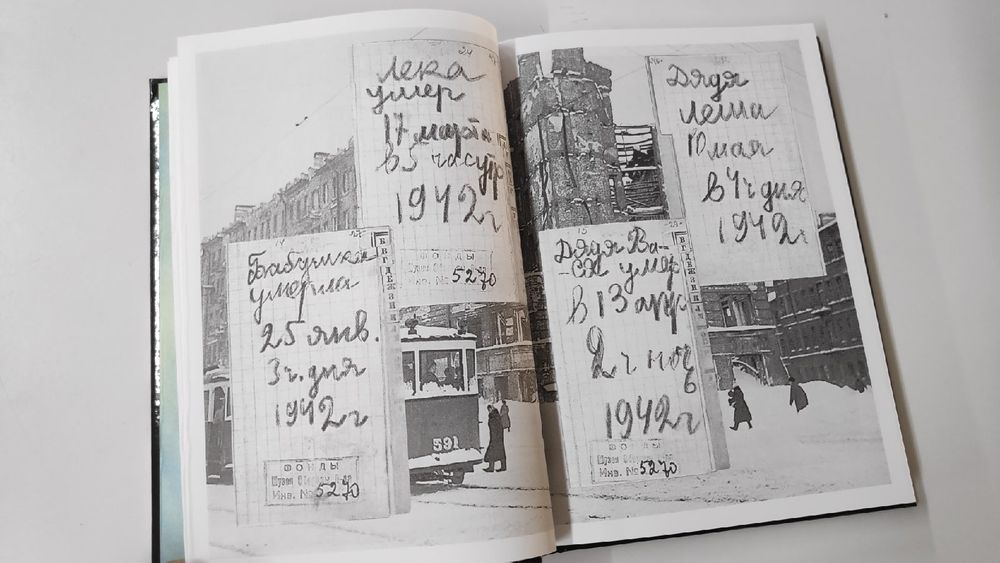 24
Лека
умер
17 марта
в 5 час утр
1942 г
ФОНДЫ
Инв. № 5270
14
Бабушка
умерла
25 янв.
3 ч. дня
1942 г
ФОНДЫ
Инв. № 5270
591
Дядя
Леша
10 мая
в 4 ч дня
1942 г
15
Дядя Ва-
ся умер
в 13 апр
2 ч ноч
1942 г
ФОНДЫ
Инв. № 5270